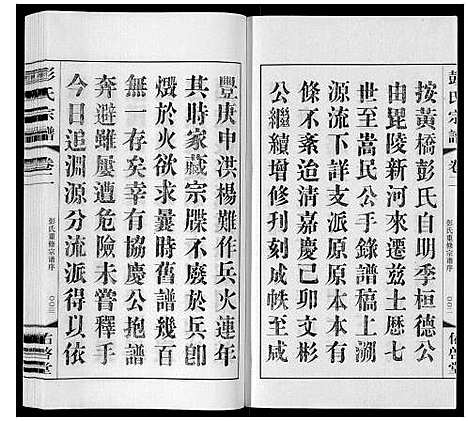 彭氏宗譜
卷二
按黃橋彭氏自明季桓德公
由毘陵新河來遷茲土歷七
世至嵩民公手錄譜稿上溯
源流下詳支派原原本本有
條不紊迨清嘉慶己卯文彬
公繼續增修刊刻成帙至咸
豐庚申洪楊難作兵火連年
其時家藏宗牒不廢於兵卽
燬於火欲求曩時舊譜幾百
無一存矣幸有協慶公抱譜
奔避雖屢遭危險未嘗釋手
今日追淵源分流派得以依
彭氏宗譜
卷二
彭氏重修宗谱序
〇〇三
佑啓堂